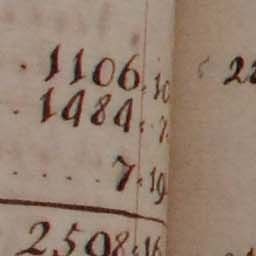 1106.10
1484.7
7.19
2598.16